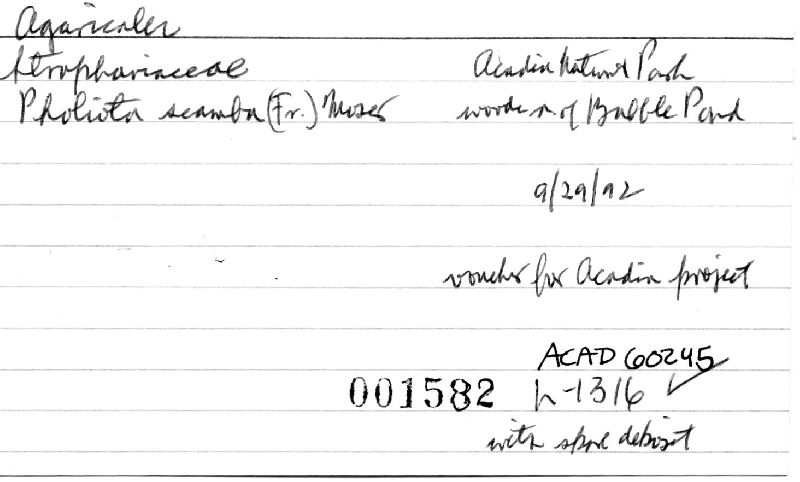 Agaricales
Strophariaceae
Pholiota scamba (Fr.) Moser
Acadia National Park
woods n. of Bubble Pond
9/29/92
voucher for Acadia project
ACAD 60245
001582 h-1316 ✓
with spore deposit